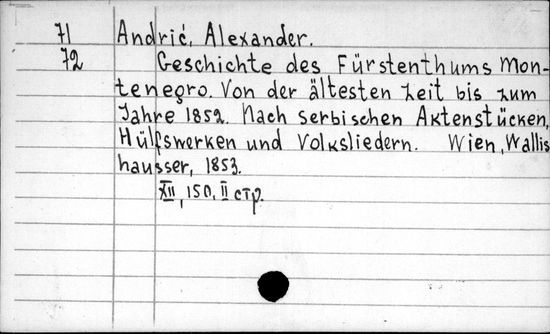 71 Andrić, Alexander.
72 Geschichte des Fürstenthums Mon-
tenegro. Von der ältesten Zeit bis zum
Jahre 1852. Nach serbischen Aktenstücken,
Hülfswerken und Volksliedern. Wien, Wallis
hausser, 1853.
XII, 150, II стр.